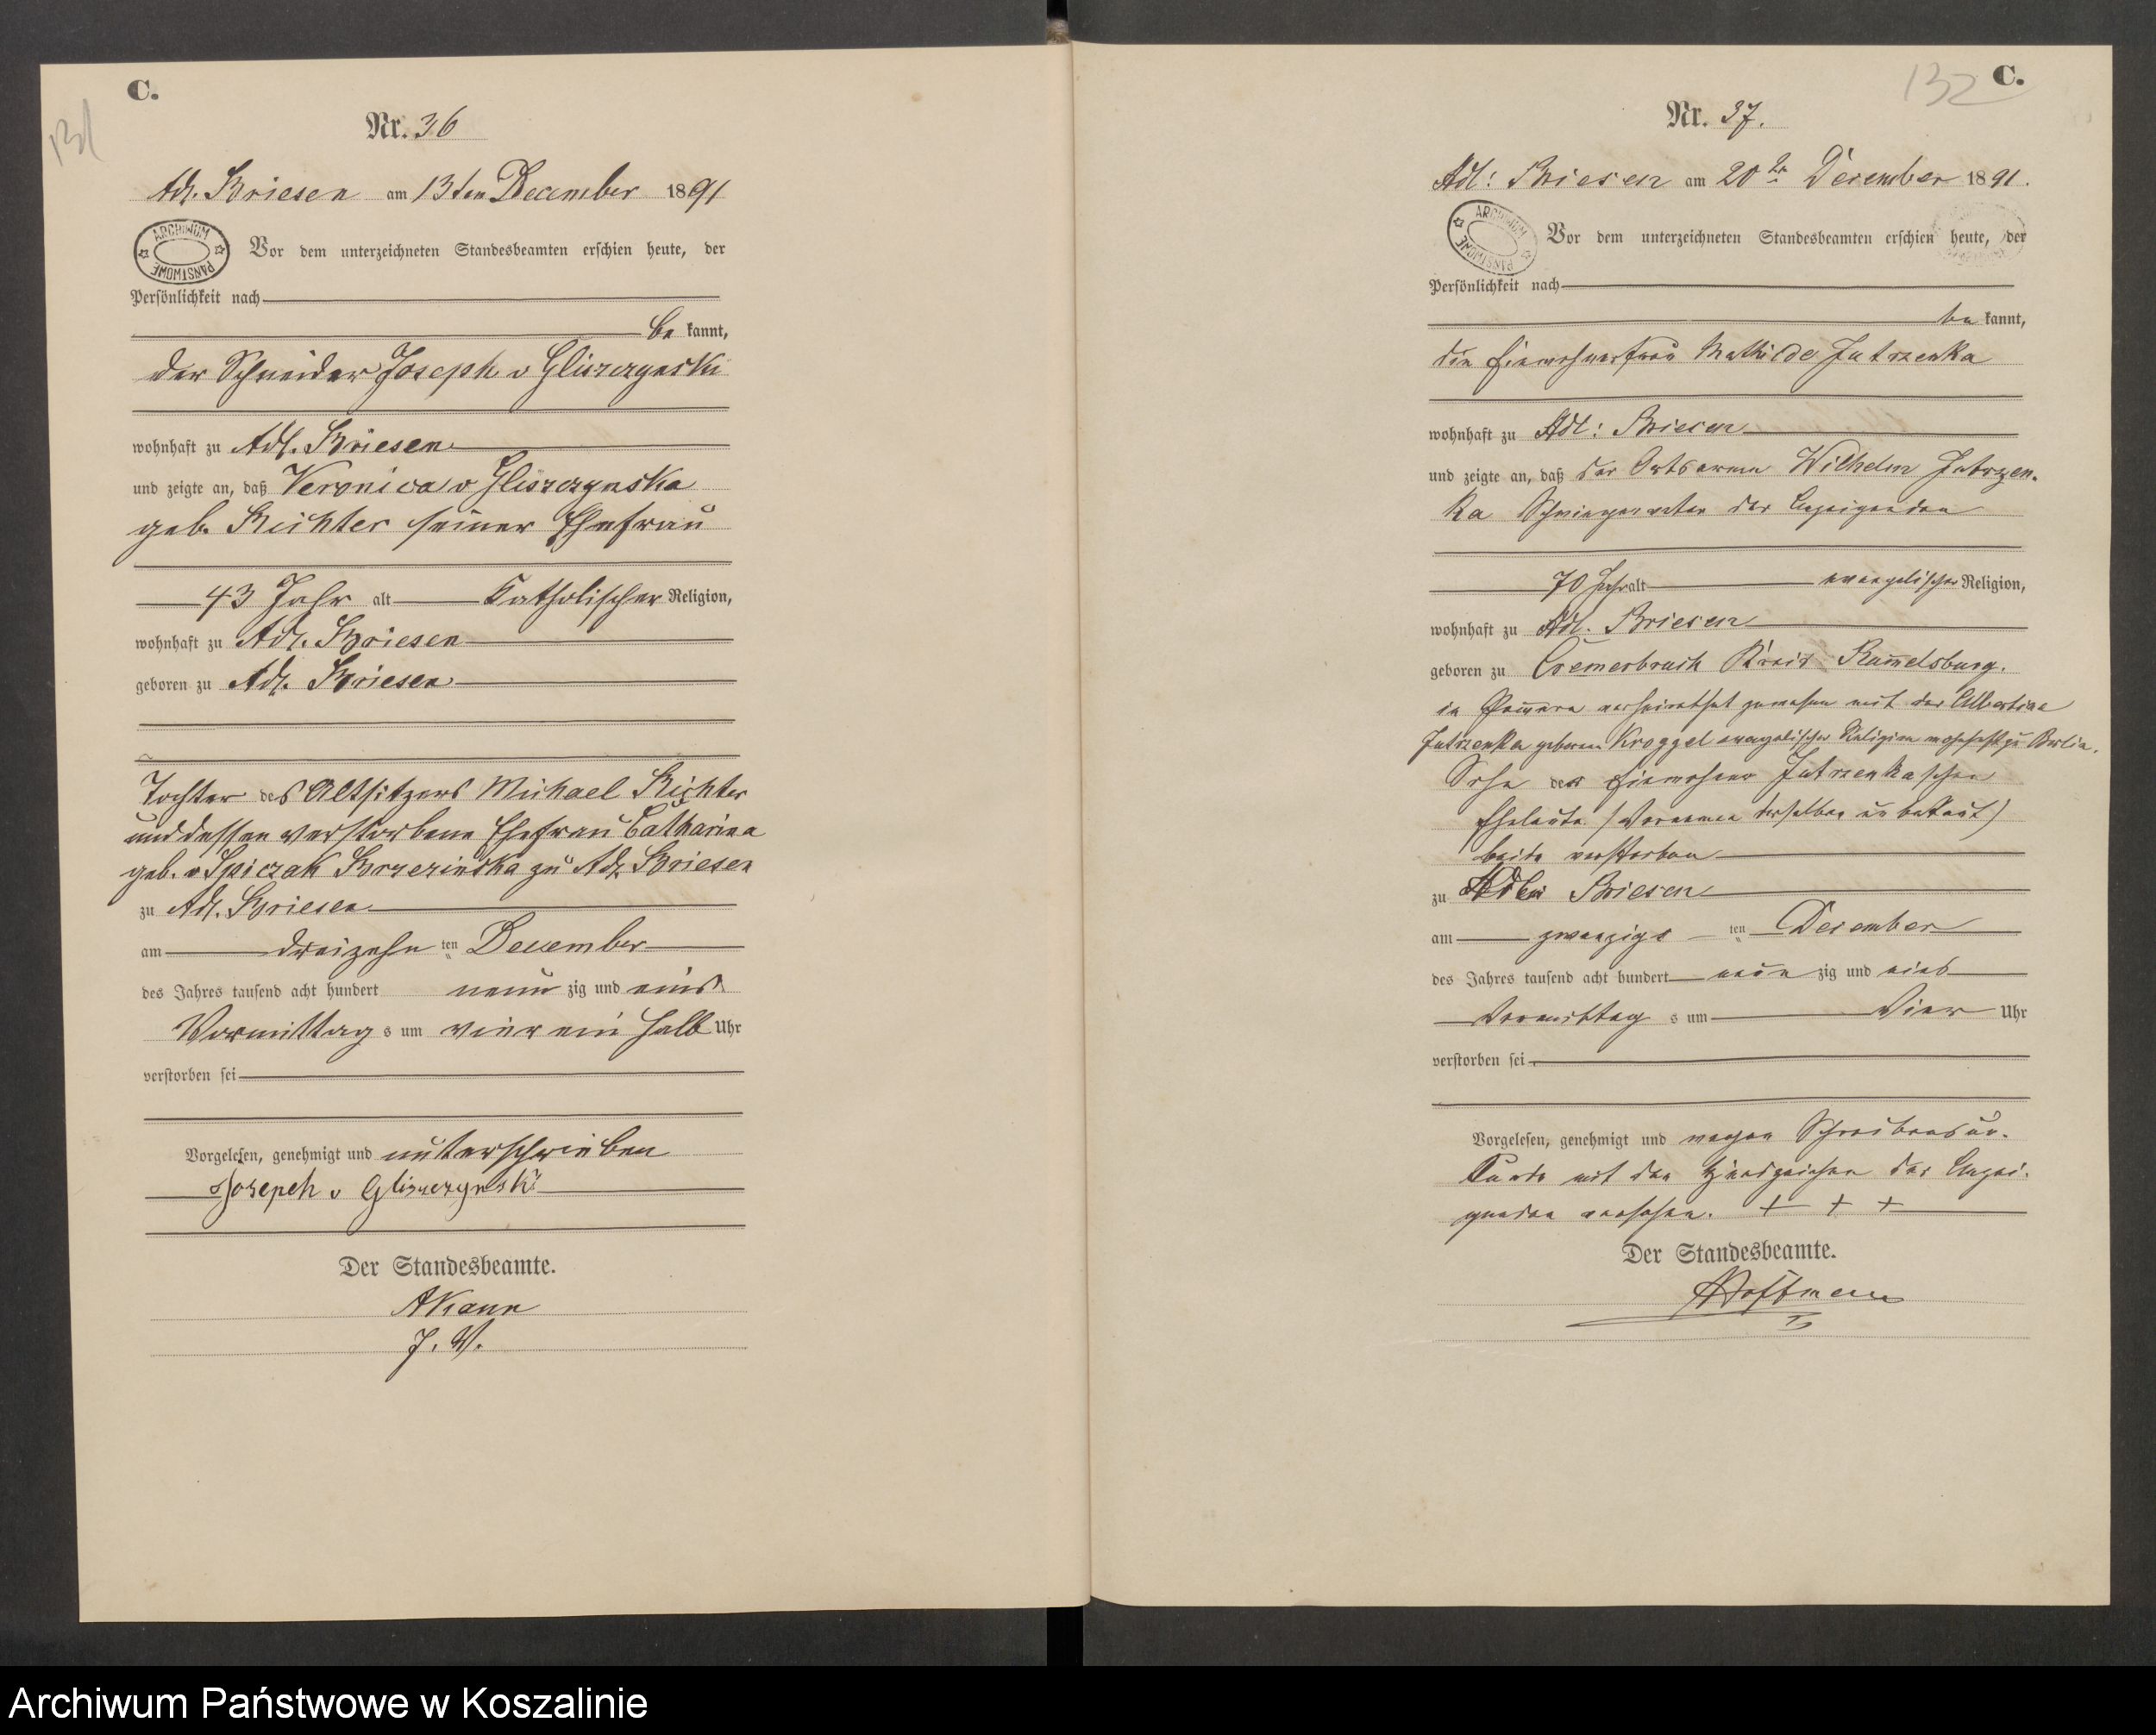 C.
131
Nr. 36
Adl. Briesen am 13ten December 1891
ARCHIWUM PAŃSTWOWE
Vor dem unterzeichneten Standesbeamten erschien heute, der
Persönlichkeit nach
be kannt,
der Schneider Joseph v Gliszczynski
wohnhaft zu Adl. Briesen
und zeigte an, daß Veronica v Gliszczynska
geb. Richter seiner Ehefrau
43 Jahr alt Katholischer Religion,
wohnhaft zu Adl. Briesen
geboren zu Adl. Briesen
Tochter des Altsitzers Michael Richter
und dessen verstorbene Ehefrau Catharina
geb. v Spiczak Brzezinska zu Adl. Briesen
zu Adl. Briesen
am dreizehn ten December
des Jahres tausend acht hundert neun zig und eins
Vormittag s um vier ein halb Uhr
verstorben sei
Vorgelesen, genehmigt und unterschrieben
Josepeh v Gliszczynski
Der Standesbeamte.
AKann
J. V.
132
C.
Nr. 37.
Adl: Briesen am 20 December 1891.
ARCHIWUM PAŃSTWOWE
Vor dem unterzeichneten Standesbeamten erschien heute, der
Persönlichkeit nach
be kannt,
die Einwohnerfrau Mathilde Jutrzenka
wohnhaft zu Adl: Briesen
und zeigte an, daß der Ortsarme Wilhelm Jutrzen-
ka Schwiegervater der Anzeigenden
70 Jahr alt evangelischer Religion,
wohnhaft zu Adl. Briesen
geboren zu Cremerbruch Kreis Rummelsburg.
in Pommern verheirathet gewesen mit der Albertine
Jutrzenka geborene Kroggel evangelischer Religion wohnhaft zu Berlin.
Sohn der Einwohner Jutrzenkaschen
Eheleute (Vornamen derselben un bekannt)
beide verstorben
zu Adlig Briesen
am zwanzigs ten December
des Jahres tausend acht hundert neun zig und eins
Vormittag s um Vier Uhr
verstorben sei
Vorgelesen, genehmigt und wegen Schreibensun-
kunde mit den Handzeichen der Anzei-
genden versehen. + + +
Der Standesbeamte.
Hoffmann
Archiwum Państwowe w Koszalinie